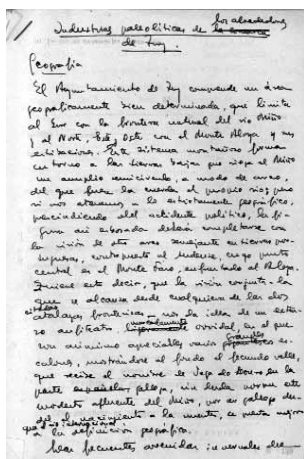 Industrias paleolíticas de los alrededores
de Tuy.
Geografía
El Ayuntamiento de Tuy comprende un área
geográficamente bien determinada, que limita
al Sur con la frontera natural del río Miño
y al Norte, Este, Oeste con el Monte Aloya y sus
estribaciones. Este sistema montañoso forma
en torno a las tierras bajas que riega el Miño
un amplio semicírculo, a modo de arco,
del que fuera la cuerda el propio río; pero
si nos atenemos a lo estrictamente geográfico,
prescindiendo del accidente político, la fi-
gura así esbozada deberá completarse con
la visión de otro arco semejante en tierras por-
tuguesas, contrapuesto al nuestro, cuyo punto
central es el Monte Faro, enfrentado al Aloya.
Quiere esto decir, que la visión conjunta la
que se alcanza desde cualquiera de las dos
citadas
atalayas fronterizas nos da la idea de un
anfiteatro ovoidal, en el que
son asimismo apreciables varios
mostrándose al fondo el fecundo valle,
que recibe el nombre de Vega do Louro en la
parte gallega, sin duda porque este
modesto afluente del Miño, por ser gallego des-
de el nacimiento a la muerte, se presta mejor
que el río internacional
a la definición geográfica.
Las frecuentes avenidas invernales de